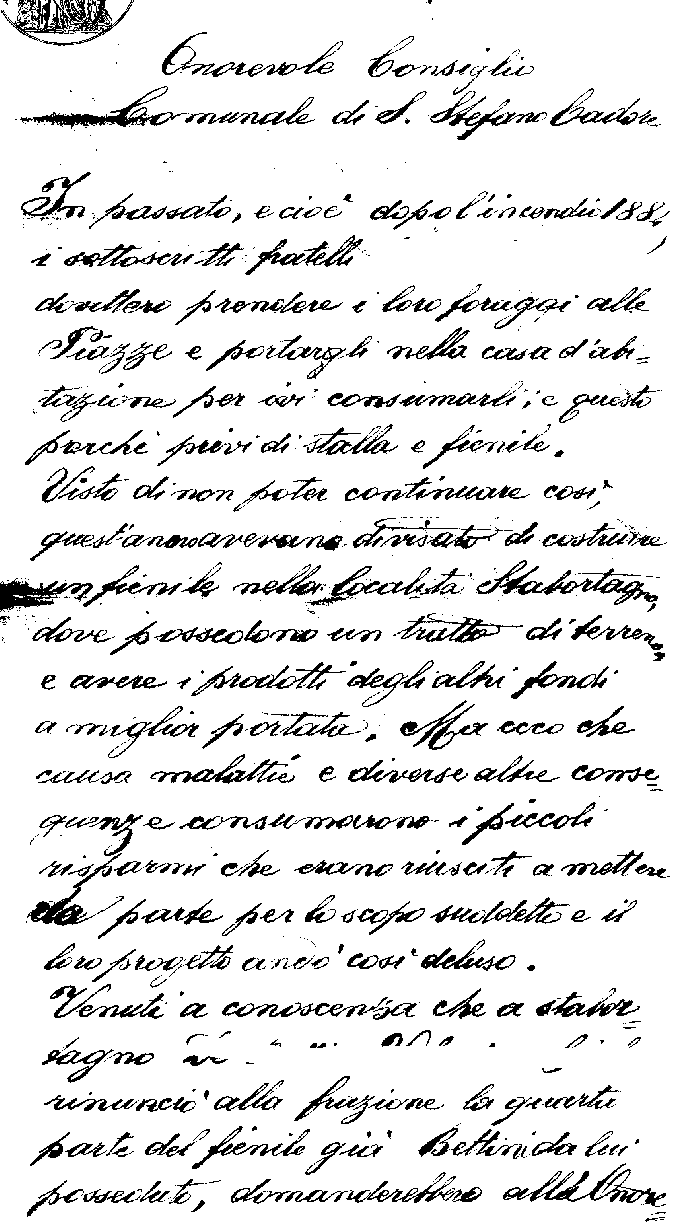 Onorevole Consiglio
Comunale di S. Stefano Cadore
In passato, e cioè dopo l'incendio 1884,
i sottoscritti fratelli
dovettero prendere i loro foraggi alle
Piazze e portargli nella casa d'abi=
tazione per ivi consumarli; e questo
perchè privi di stalla e fienile.
Visto di non poter continuare così,
quest'anno avevano divisato di costruire
un fienile nella località Stabortagno,
dove possedono un tratto di terreno
e avere i prodotti degli altri fondi
a miglior portata. Ma ecco che
causa malattie e diverse altre conse=
guenze consumarono i piccoli
risparmi che erano riusciti a mettere
da parte per lo scopo suddetto e il
loro progetto andò così deluso.
Venuti a conoscenza che a stabor=
tagno
rinunciò alla frazione la quarta
parte del fienile già Bettini da lui
posseduto, domanderebbero alla Onore=